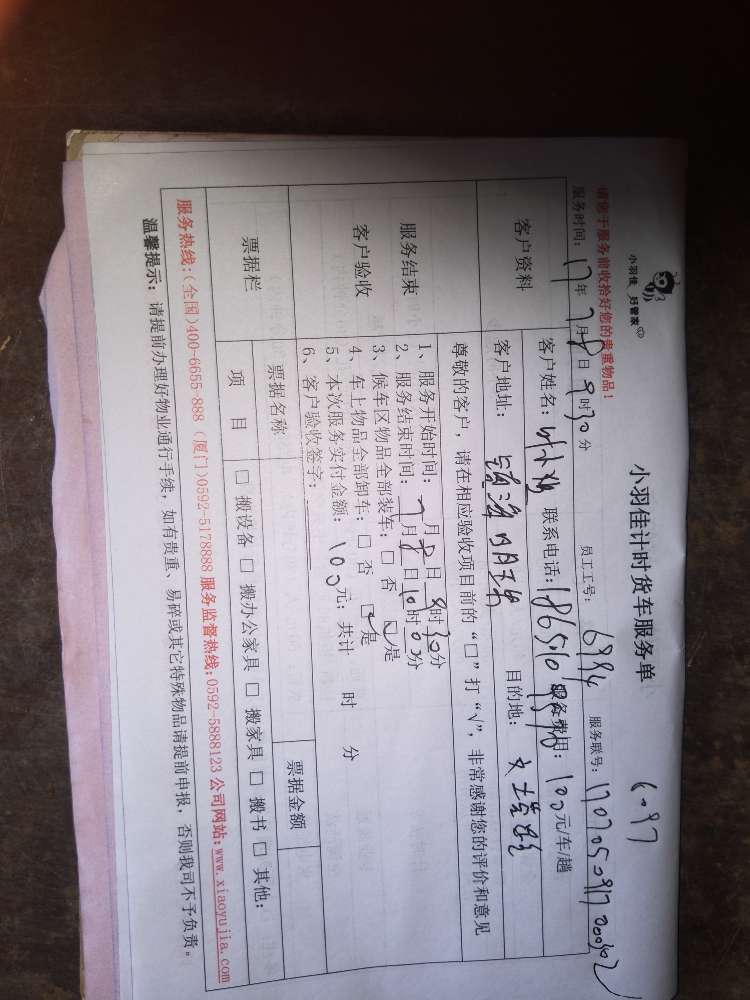 小羽佳 好管家
小羽佳计时货车服务单
6097
请您于服务前收拾好您的贵重物品！
服务时间：17年7月8日9时30分 员工工号：6994 服务联号：
客户资料 客户姓名： 联系电话： 服务费用：100元/车/趟
客户地址： 目的地：
尊敬的客户，请在相应验收项目前的“□”打“√”，非常感谢您的评价和意见
服务结束
客户验收
1、服务开始时间：7月8日9时30分
2、服务结束时间：7月8日10时00分
3、候车区物品全部装车：□ 否 ☑是
4、车上物品全部卸车：□ 否 ☑是
5、本次服务实付金额：100元；共计 时 分
6、客户验收签字：
票据栏 票据名称 票据金额
项 目 □ 搬设备 □ 搬办公家具 □ 搬家具 □ 搬书 □ 其他：
服务热线：(全国)400-6655-888 (厦门)0592-5178888 服务监督热线：0592-5888123 公司网站：www.xiaoyujia.com
温馨提示： 请提前办理好物业通行手续，如有贵重、易碎或其它特殊物品请提前申报，否则我司不予负责。